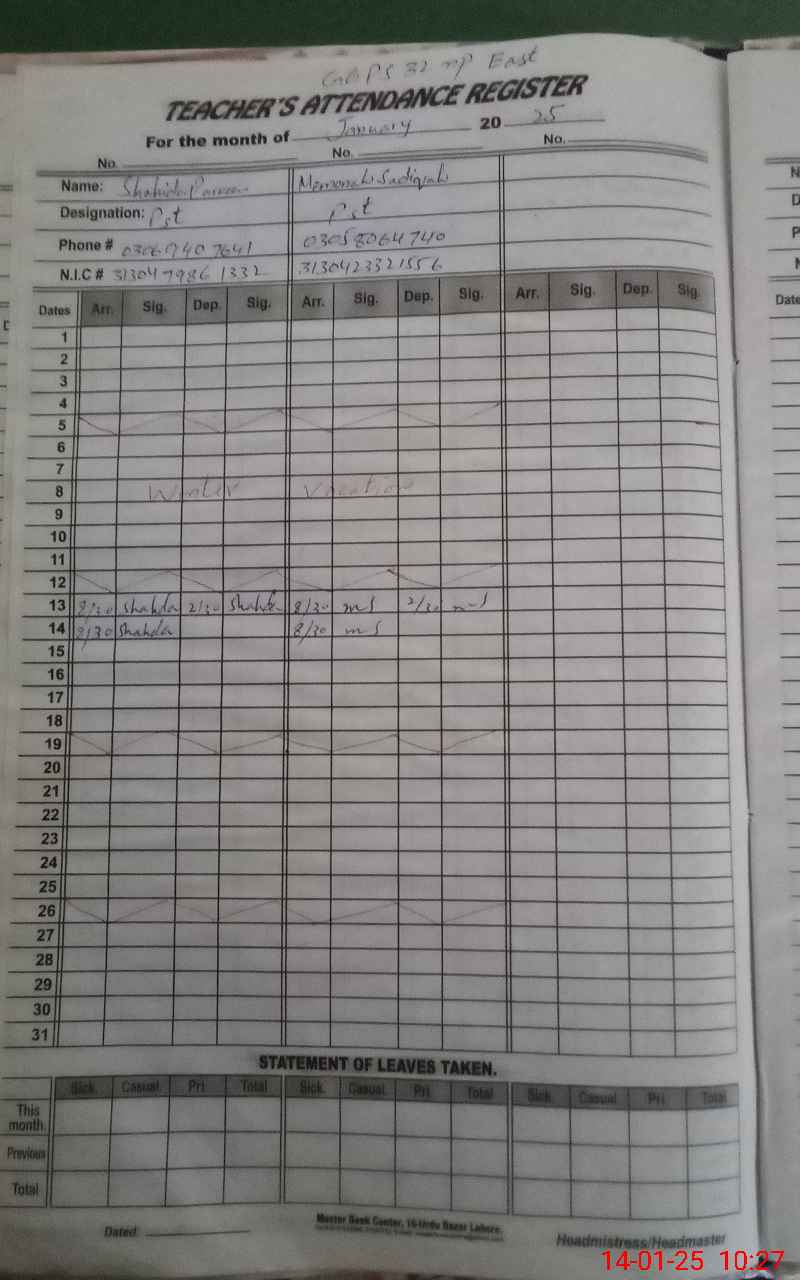 GGPS 32 np East
TEACHER'S ATTENDANCE REGISTER
For the month of January 20 25
No. No. No.
Name: Shahida Parveen Memonah Sadiqah
Designation: Pst Pst
Phone # 0306 940 7641 03058064740
N.I.C # 31304 7986 1332 3130423321556
Dates Arr. Sig. Dep. Sig. Arr. Sig. Dep. Sig. Arr. Sig. Dep. Sig.
1
2
3
4
5
6
7
8 Winter Vacation
9
10
11
12
13 8/30 Shahda 2/30 Shahda 8/30 ms 2/30 ms
14 8/30 Shahda 8/30 ms
15
16
17
18
19
20
21
22
23
24
25
26
27
28
29
30
31
STATEMENT OF LEAVES TAKEN.
Sick. Casual. Pri. Total Sick. Casual. Pri. Total Sick. Casual Pri. Total
This month.
Previous
Total
Dated: Master Book Center, 16-Urdu Bazar Lahore. Headmistress/Headmaster
14-01-25 10:27